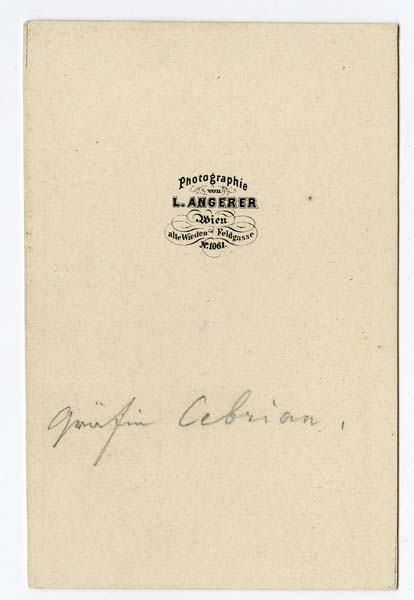 Photographie
von
L. ANGERER
Wien
alte Wieden Feldgasse
No. 1061.
Gräfin Cebrian.